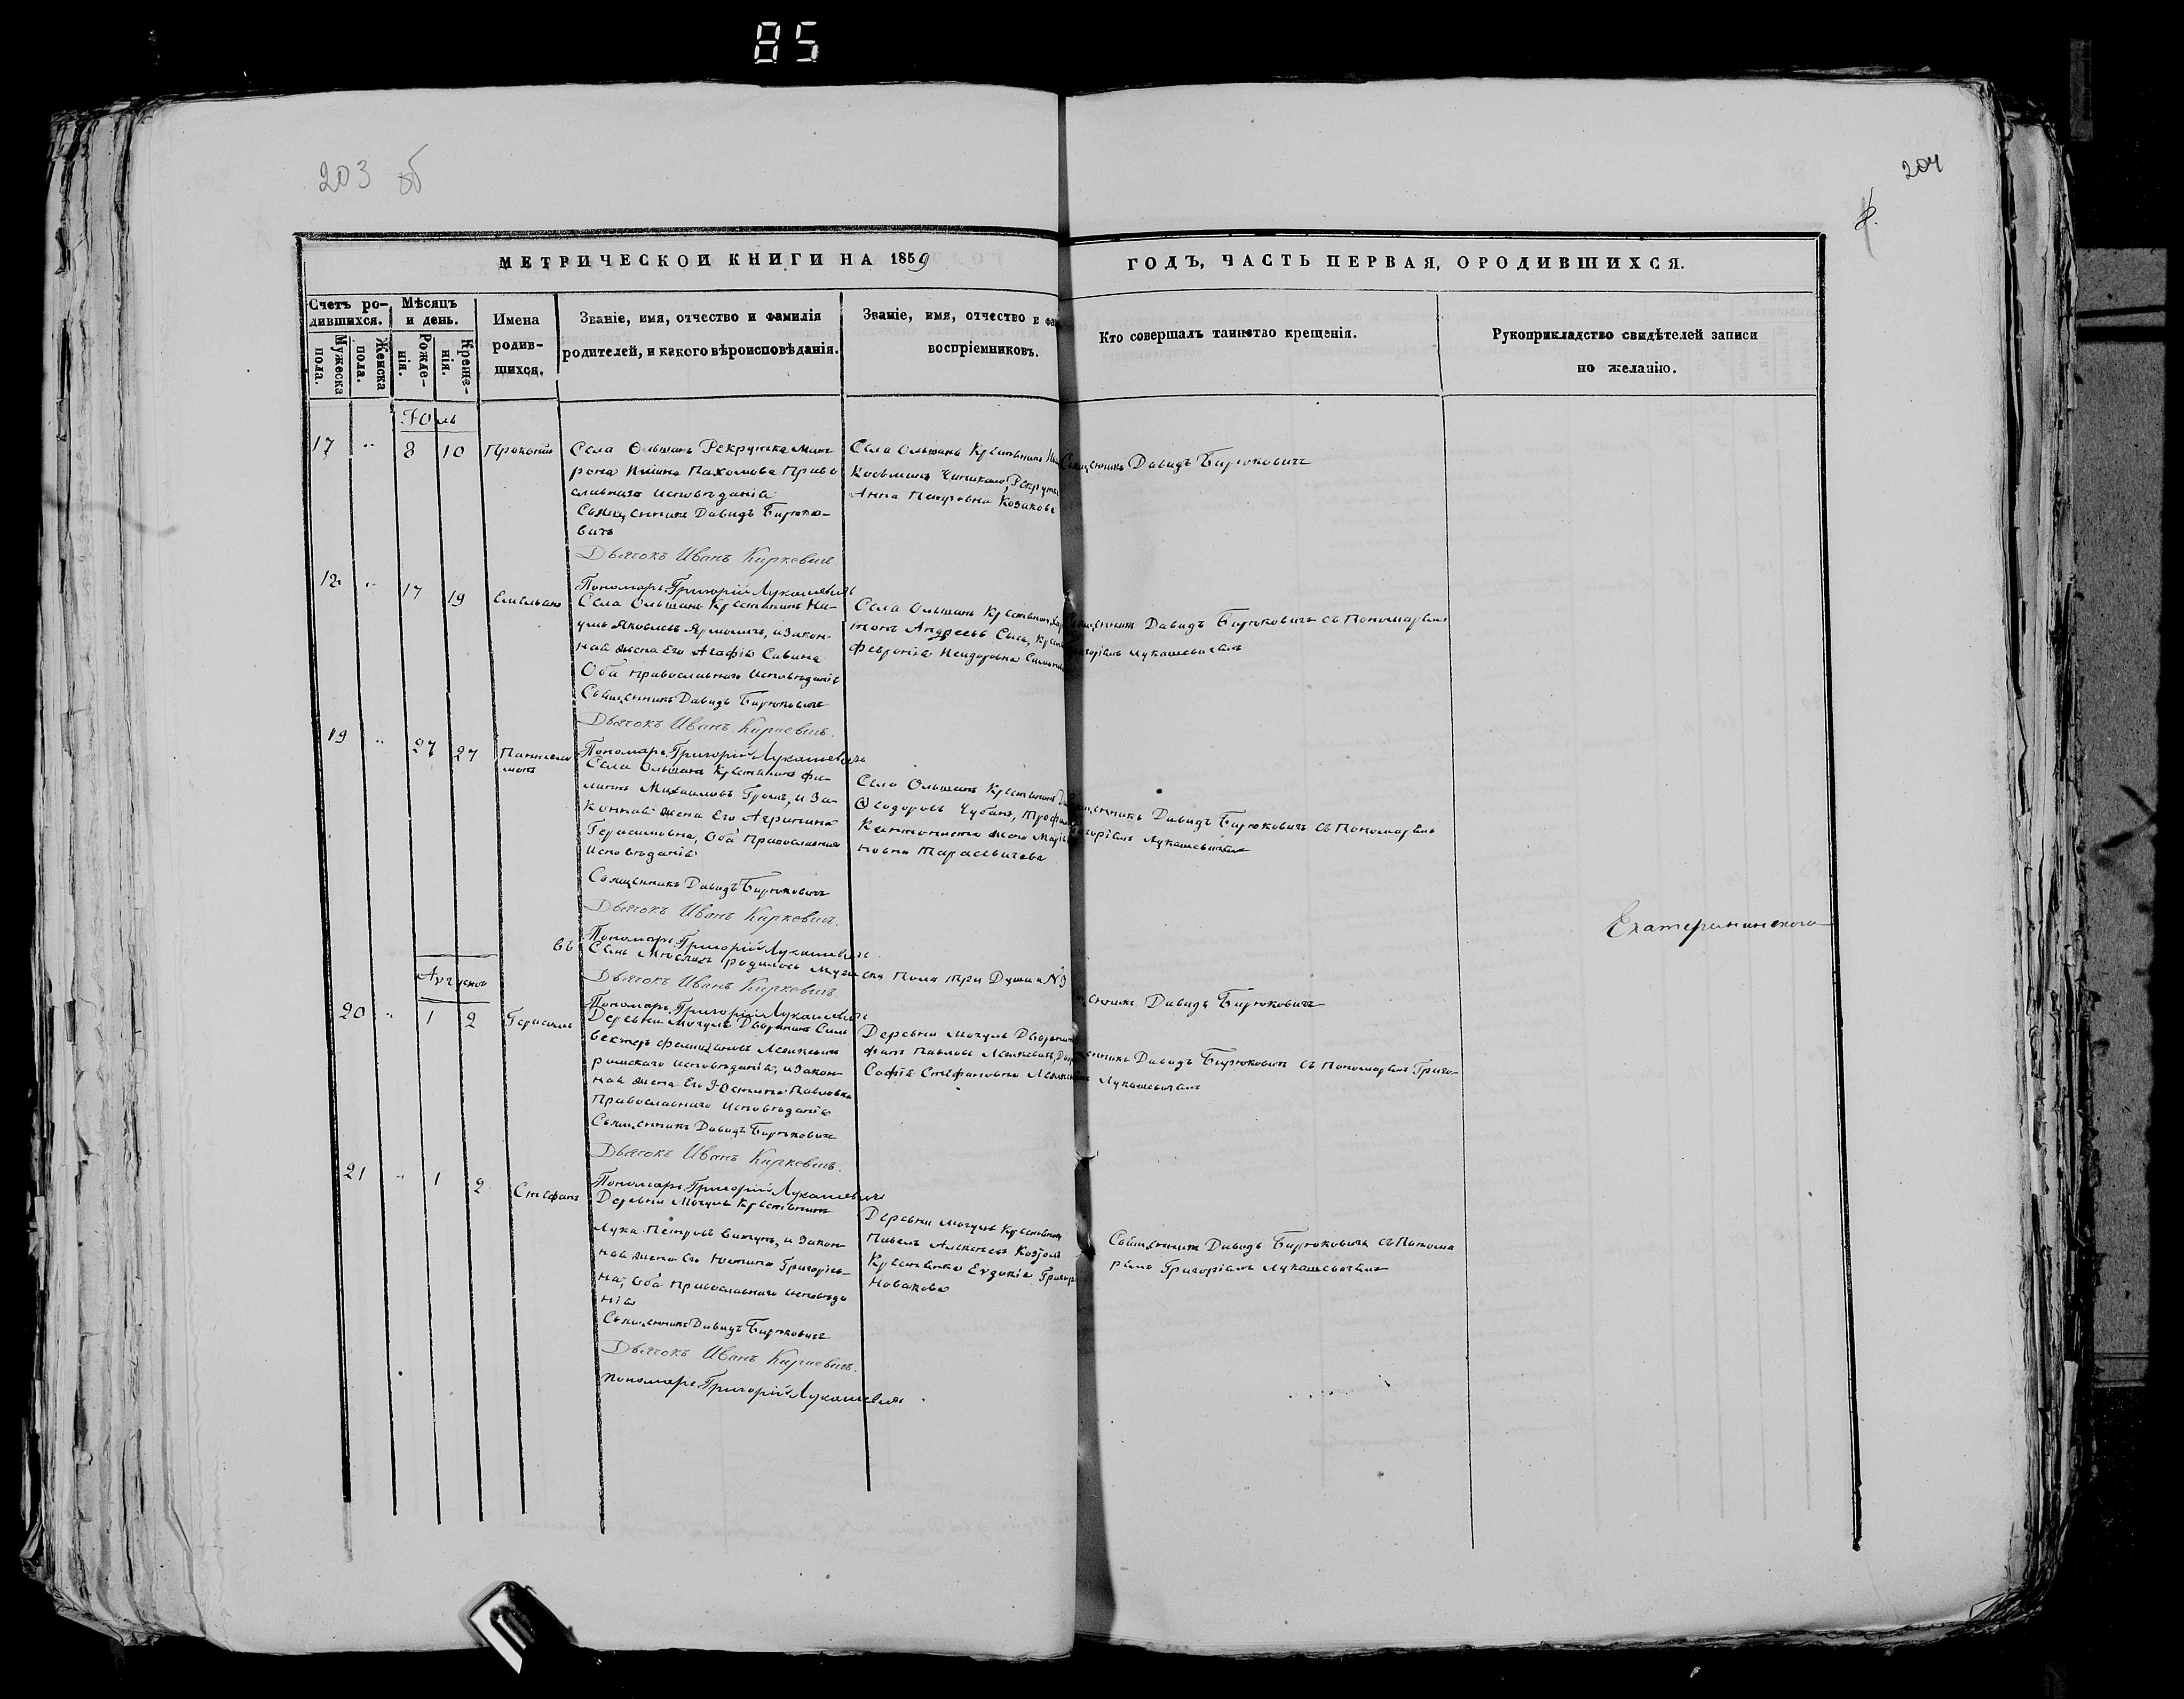 85
203 об
204
8.
МЕТРИЧЕСКОИ КНИГИ НА 1859
ГОДЪ, ЧАСТЬ ПЕРВАЯ, ОРОДИВШИХСЯ.
Счетъ ро-
дившихся.
Мужеска
пола.
Женска
пола.
Мѣсяцъ
и день.
Рожде-
нія.
Креще-
нія.
Имена
родив-
шихся.
Званіе, имя, отчество и фамилія
родителей, и какого вѣроисповѣданія.
Званіе, имя, отчество и фа
воспріемниковъ.
Кто совершалъ таинство крещенія.
Рукоприкладство свидѣтелей записи
по желанію.
Юль
17 " 8 10 Прокопій
Села Ольшанъ Рекрутка Мат
рона Пахомова Право
славнаго исповѣданія
Священникъ Давидъ Бирюко-
вичъ
Дьячокъ Иванъ Киркевичъ.
Пономарь Григорій Лукашевичъ
Села Ольшанъ Крестьянинъ
Козьминъ Рекрутка
Анна Петровна Козакова
Священникъ Давидъ Бирюковичъ
" 17 19 Емельянъ
Села Ольшанъ Крестьянинъ На-
умъ Яковлевъ Ярмоличъ, и закон-
ная жена Его Агафія Савина
Оба православнаго исповѣданія
Священникъ Давидъ Бирюковичъ
Дьячокъ Иванъ Киркевичъ.
Пономарь Григорій Лукашевичъ
Села Ольшанъ Крестьянинъ
тонъ Андреевъ Сыса,
Февронія
Священникъ Давидъ Бирюковичъ съ Пономаремъ
Григоріемъ Лукашевичемъ
19 " 27 27 Пантелеи
монъ
Села Ольшанъ Крестьянинъ Фи-
липъ Михаиловъ Громъ, и за-
конная жена Его Агрипина
Герасимовна, Оба Православнаго
Исповѣданія
Священникъ Давидъ Бирюковичъ
Дьячокъ Иванъ Киркевичъ.
Пономарь Григорій Лукашевичъ
Села Ольшанъ Крестьянинъ
Ѳеодоровъ Чубанъ,
Кантониста жена
новна Тарасевичева
Священникъ Давидъ Бирюковичъ съ Пономаремъ
Григоріемъ Лукашевичемъ
Екатерининскаго
Въ Семъ Мѣсяцѣ родилось Мужеска Пола три Души №3
Дьячокъ Иванъ Киркевичъ.
Священникъ Давидъ Бирюковичъ
Пономарь Григорій Лукашевичъ
Августъ
20 " 1 2 Герасимъ
Деревни Мочуль Дворянинъ Силь
вестеръ Фелиціановъ
римскаго исповѣданія, и закон-
ная жена Его Юстина Павловна
Православнаго Исповѣданія
Священникъ Давидъ Бирюковичъ
Дьячокъ Иванъ Киркевичъ.
Пономарь Григорій Лукашевичъ
Деревни Мочуль Дворянинъ
фанъ Павловъ
Софія Стефановна
Священникъ Давидъ Бирюковичъ съ Пономаремъ Григо-
ріемъ Лукашевичемъ
21 " 1 2 Стефанъ
Деревни Мочуль Крестьянинъ
Лука Петровъ и закон-
ная жена Его Юстина Григорьев-
на, Оба православнаго исповѣда
нія
Священникъ Давидъ Бирюковичъ
Дьячокъ Иванъ Киркевичъ.
Пономарь Григорій Лукашевичъ.
Деревни Мочуль Крестьянинъ
Павелъ Алексеевъ Козолъ
Крестьянка Евдокія Григорь
Новакова
Священникъ Давидъ Бирюковичъ съ Понома
ремъ Григоріемъ Лукашевичемъ